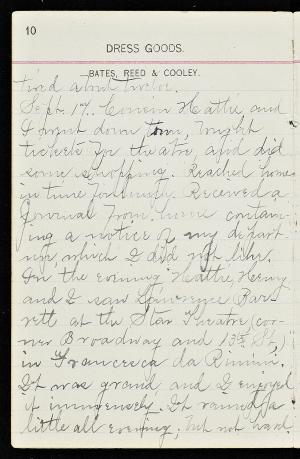 10
DRESS GOODS.
BATES, REED & COOLEY.
tired about twelve.
Sept. 17. Cousin Hattie and
I went down town, bought
tickets for theatre, and did
some shopping. Reached home
in time for
Received a
Journal from home contain-
ing a notice of my depart-
ure, which I did not like.
In the evening Hattie, Henry
and I saw Lawrence Bar-
rett at the Star Theatre (cor-
ner Broadway and 13th St.)
in Francesca da Rimini.
It was grand, and I enjoyed
it immensely. It rained a
little all evening, but not hard.